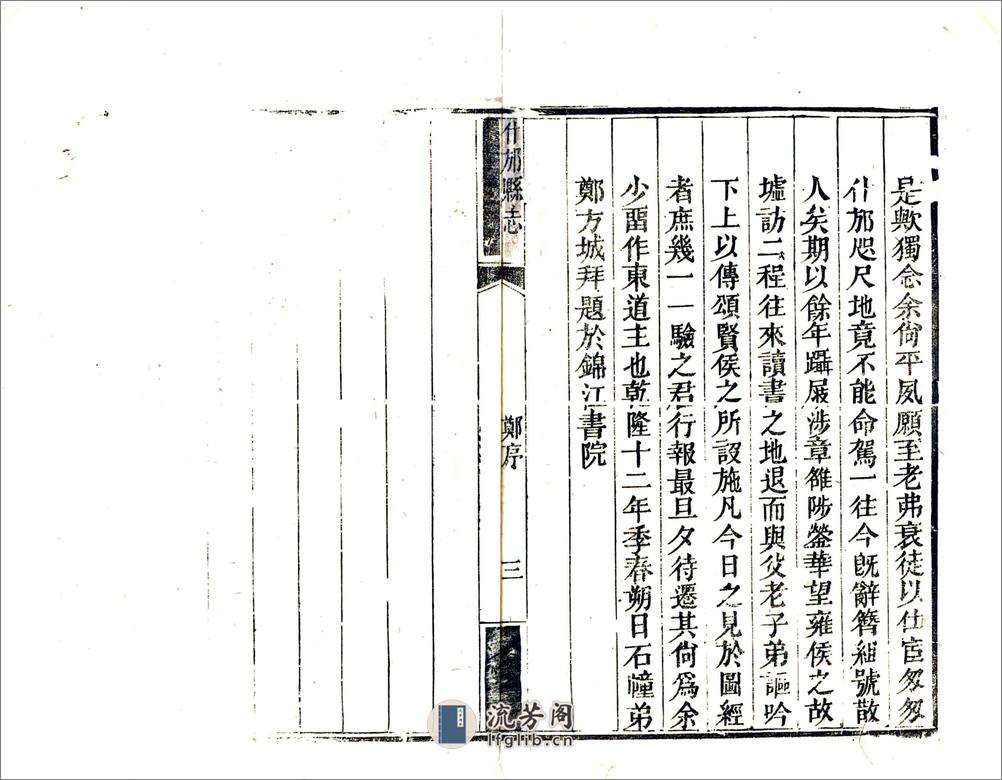 是歟獨念余尙平夙願至老弗衰徒以仕宦匆匆
什邡咫尺地竟不能命駕一往今旣辭簪組號散
人矣期以餘年躡屐涉章雒陟鎣華望雍侯之故
墟訪二程往來讀書之地退而與父老子弟謳吟
下上以傳頌賢侯之所設施凡今日之見於圖經
者庶幾一一驗之君行報最旦夕待遷其尙爲余
少畱作東道主也乾隆十二年季春朔日石幢弟
鄭方城拜題於錦江書院
什邡縣志
鄭序
三
流芳阁
lfglib.cn